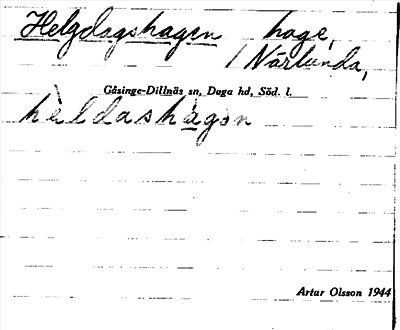 Helgdagshagen hage,
/ Närlunda,
Gåsinge-Dillnäs sn, Daga hd, Söd. l.
hèldashàgon
Artur Olsson 1944